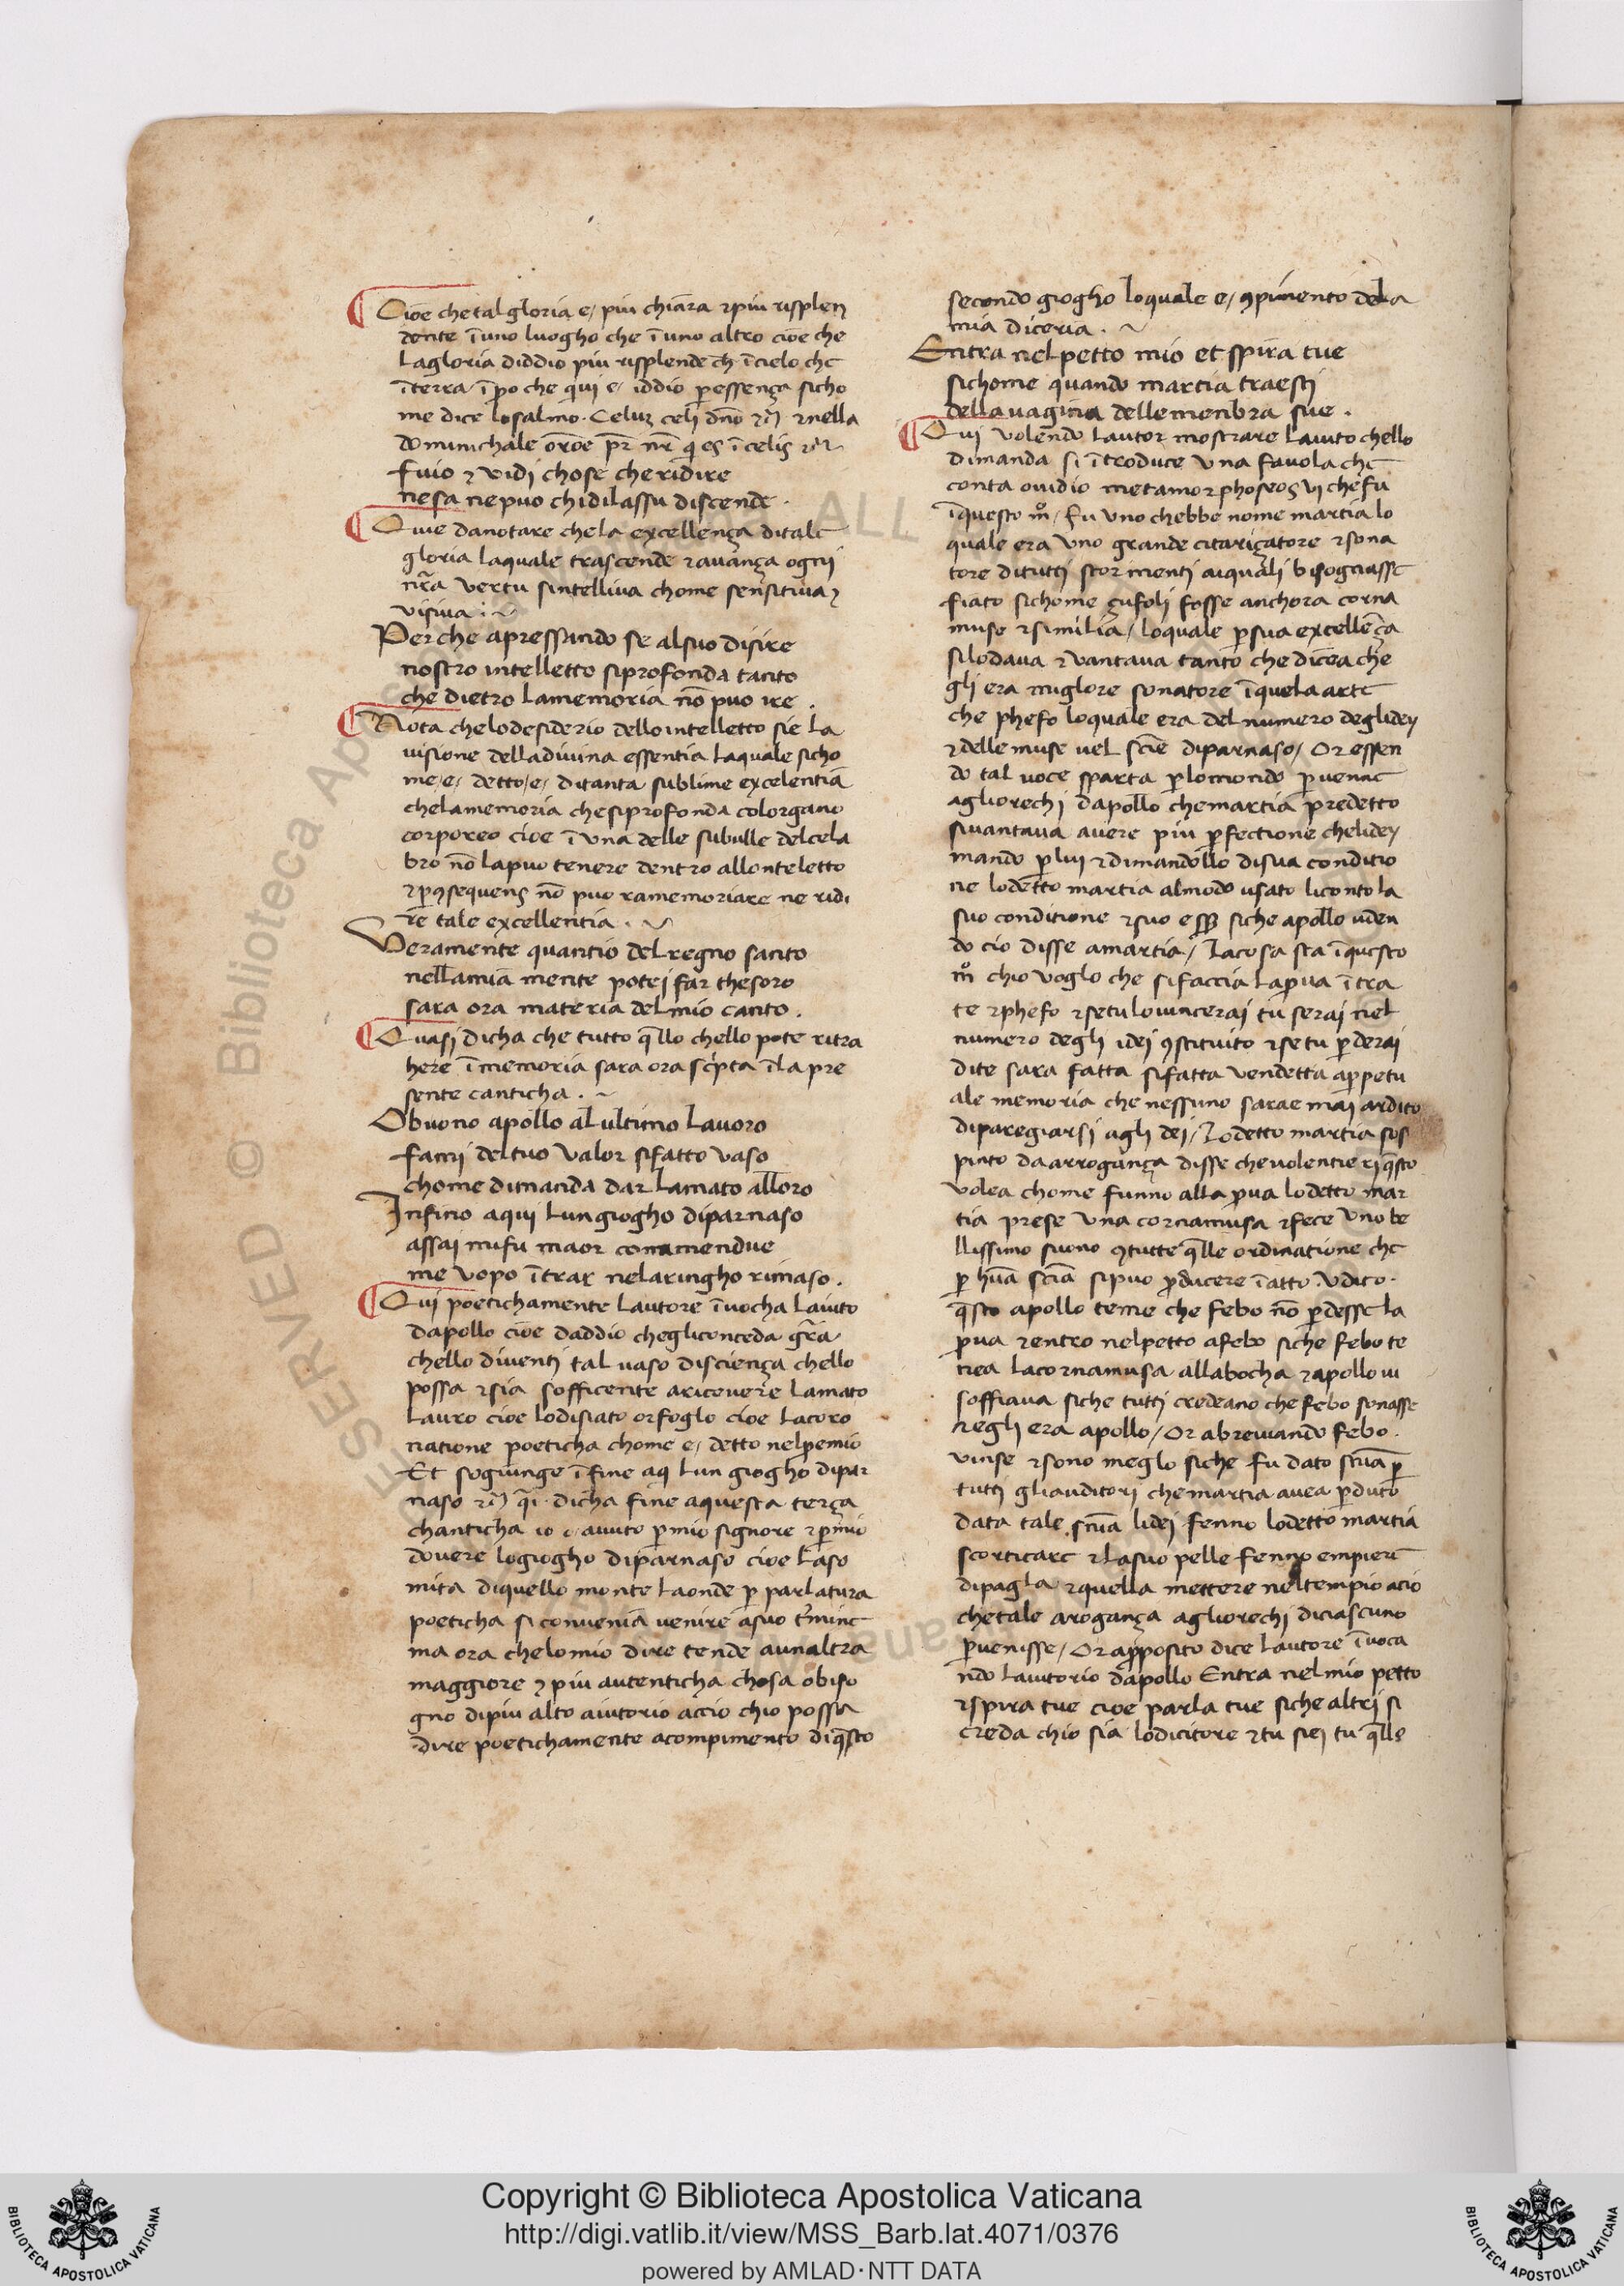 Cioe chetal gloria e/ piu chiara ⁊piu risplen
dente ī uno luogho che ī uno altro cioe che
lagloria diddio piu risplende ch̄ ī cielo che
ī terra ī p̄o che qui e/ iddio p̲ essença sicho
me dice losalmo. Celuȝ celi dn̄o ⁊c̄ ⁊nella
dominichale or̄oe pr̄ nr̄ q es ī celis ⁊c̄
fuio ⁊ vidi chose che ridire
nesa nepuo chidilassu discende.
Quie danotare chela excellença ditale
gloria laquale trascende ⁊avança ogni
nr̄a vertu sintelliua chome sensitiua ⁊
visiua
Perche apressando se alsuo disire
nostro intelletto siprofonda tanto
che dietro lamemoria nō puo ire.
Nota chelodesiderio dellointelletto sie la
visione delladiuina essentia laquale sicho
me/e/ detto/e/ ditanta sublime excelentia
chelamemoria chesiprofonda colorgano
corporeo cioe ī una delle subulle delcela
bro nō lapuo tenere dentro allonteletto
⁊p̲ ꝯsequens nō puo ramemoriare ne ridi
re tale excellentia.
Veramente quantio delregno santo
nellamia mente potei far thesoro
sara ora materia delmio canto.
Quasi dicha che tutto q̄llo chello pote ritra
here ī memoria sara ora scripta ī la pre
sente canticha.
Obuono apollo alultimo lauoro
fammi deltuo valor sifatto vaso
chome dimanda dar lamato alloro
Infino aqui lungiogho diparnaso
assai mifu maor conamendue
me vopo ītrar nelaringho rimaso.
Qui poetichamente lautore īuocha laiuto
dapollo cioe daddio chegliconceda gr̄a
chello diuenti tal uaso disciença chello
possa ⁊sia sofficente ariceuere lamato
lauro cioe lodisiato orfoglo cioe lacoro
natione poeticha chome e/ detto nelp̲emio
Et sogiunge ī fine aq̲ lun giogho dipar
naso ⁊c̄ q̄i dicha fine aquesta terça
chanticha io o auuto p̲ mio signore ⁊p̲ mio
douere logiogho diparnaso cioe laso
mita diquello monte laonde p̲ parlatura
poeticha si conuenia venire asuo t̄mine
ma ora chelomio dire tende aunaltra
maggiore ⁊ piu autenticha chosa obiso
gno dipiu alto aiutorio accio chio possa
dire poetichamente acompimento diq̄sto
secondo giogho loquale e/ ꝯpimento dela
mia diceria.
Entra nelpetto mio et spira tue
sichome quando martia traesti
dellauagina dellemenbra sue.
Qui volendo lautor mostrare laiuto chello
dimanda si ītroduce una fauola che
conta ouidio metamorphoseos vi che fu
ī questo mo/ fu uno chebbe nome martia lo
quale era uno grande citariçatore ⁊sona
tore ditutti stormenti aiquali bisognasse
fiato sichome çufoli fosse anchora corna
muse ⁊similia/ loquale p̲ sua excellēça
silodaua ⁊vantaua tanto che dicea che
gli era miglore sonatore ī quela arte
che phefo loquale era del numero deglidey
⁊delle muse uel scīe diparnaso/ Or essen
do tal uoce sparta p̲ lomondo p̲uenne
agliorechi dapollo chemartia predetto
siuantaua auere piu p̲fectione chelidey
mando p̲ lui ⁊dimandollo disua conditio
ne lodetto martia almodo usato licontola
suo conditione ⁊suo e ss̄ siche apollo uden
do cio disse amartia/ Lacosa sta ī questo
mo chio voglo che sifaccia lap̲ua ī tra
te ⁊phefo ⁊setulouincerai tu serai nel
numero degli idei ꝯstituito ⁊setu p̲derai
dite sara fatta sifatta vendetta ap̲petu
ale memoria che nessuno sarae mai ardito
diparegiarsi agli dei/ Lodetto martia sos
pinto daarrogança disse cheuolentieri q̄sto
volea chome funno alla p̲ua lodetto mar
tia prese una cornamusa ⁊fece uno be
llissimo suono ꝯtutte q̄lle ordinatione che
p̲ hūa scīa sipuo p̲ducere ī atto. Udito
q̄sto apollo teme che febo nō p̲desse la
p̲ua ⁊entro nelpetto afebo siche febo te
nea lacornamusa allabocha ⁊apollo ui
soffiaua siche tutti credeano che febo sonasse
⁊egli era apollo/ Or abreuiando febo
vinse ⁊sono meglo siche fu dato snīa p̲
tutti gliauditori chemartia auea p̲duto
data tale snīa lidei fenno lodetto martia
scorticare ⁊lasuo pelle fenno empiere
dipagla ⁊quella mettere neltempio acio
chetale arogança agliorechi diciascuno
p̲uenisse/ Or ap̲posito dice lautore īuoca
ndo laiutorio dapollo Entra nelmio petto
⁊spira tue cioe parla tue siche altri si
creda chio sia lodicitore ⁊tu siei tu q̄llo
Copyright © Biblioteca Apostolica Vaticana
http://digi.vatlib.it/view/MSS_Barb.lat.4071/0376
powered by AMLAD·NTT DATA
BIBLIOTECA APOSTOLICA VATICANA
BIBLIOTECA APOSTOLICA VATICANA